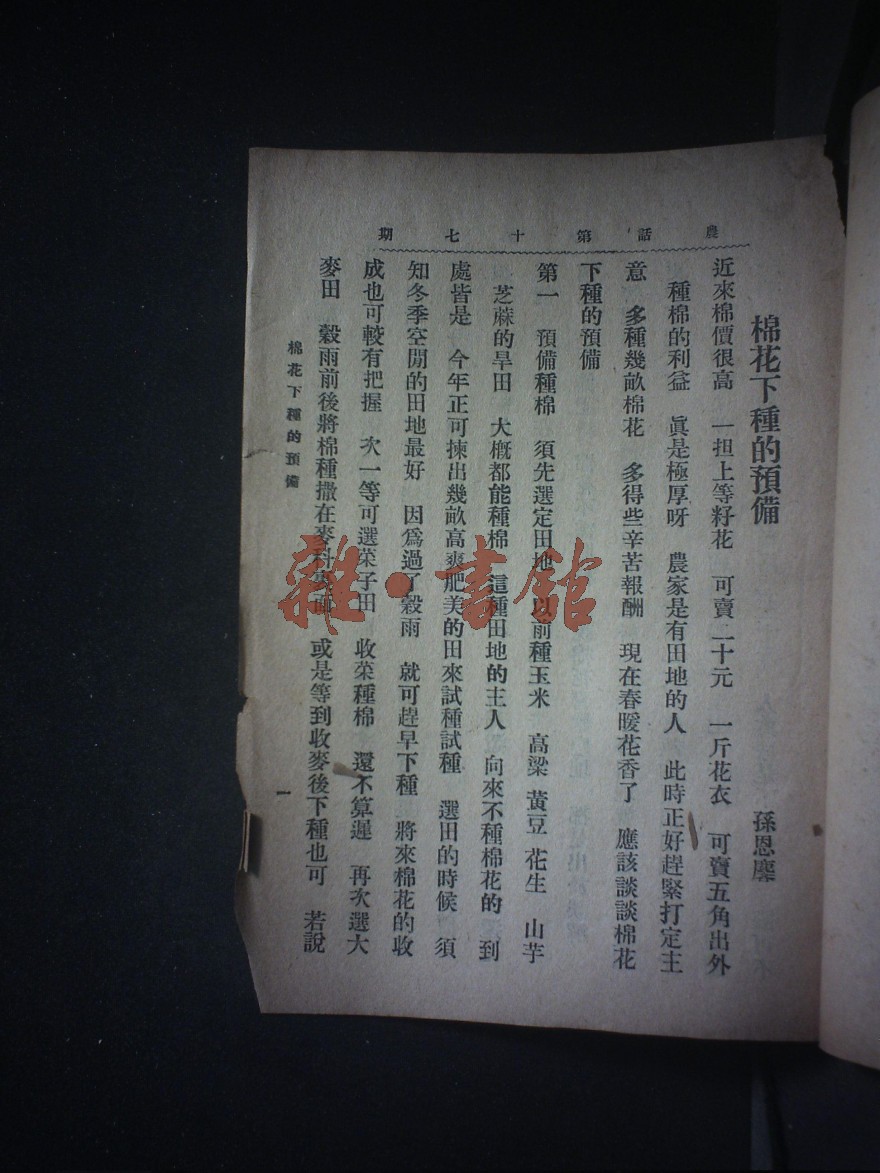 農話第十七期
棉花下種的預備
孫恩麐
近來棉價很高　一担上等籽花　可賣二十元　一斤花衣　可賣五角出外
種棉的利益　眞是極厚呀　農家是有田地的人　此時正好趕緊打定主
意　多種幾畝棉花　多得些辛苦報酬　現在春暖花香了　應該談談棉花
下種的預備
第一　預備種棉　須先選定田地　以前種玉米　高粱　黃豆　花生　山芋
芝蔴的旱田　大槪都能種棉　這種田地的主人　向來不種棉花的　到
處皆是　今年正可揀出幾畝高爽肥美的田來試種試種　選田的時候　須
知冬季空閒的田地最好　因爲過了穀雨　就可趕早下種　將來棉花的收
成也可較有把握　次一等可選菜子田　收菜種棉　還不算遲　再次選大
麥田　穀雨前後將棉種撒在麥科裏面　或是等到收麥後下種也可　若說
棉花下種的預備
一
雜·書館